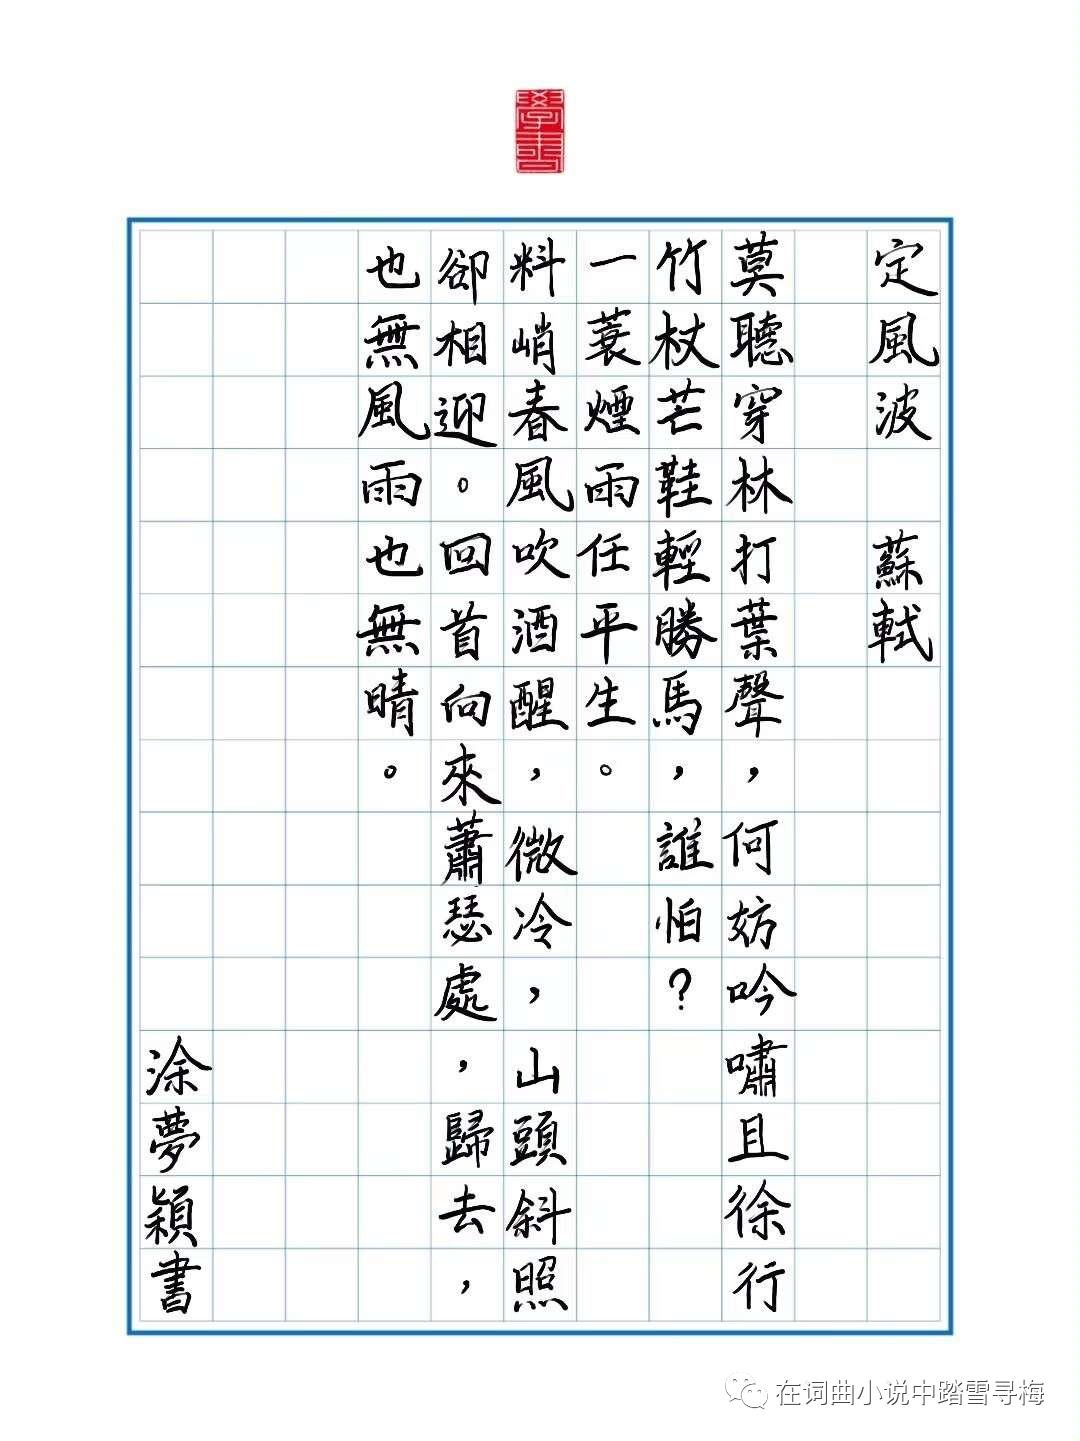 定風波 蘇軾
莫聽穿林打葉聲，何妨吟嘯且徐行
竹杖芒鞋輕勝馬，誰怕？
一蓑煙雨任平生。
料峭春風吹酒醒，微冷，山頭斜照
卻相迎。回首向來蕭瑟處，歸去，
也無風雨也無晴。
涂夢穎書
在词曲小说中踏雪寻梅